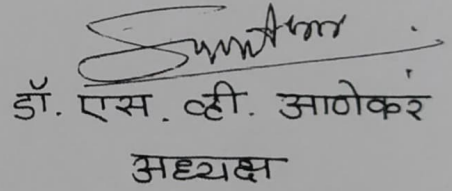 डॉ. एस. व्ही. आणेकर
अध्यक्ष